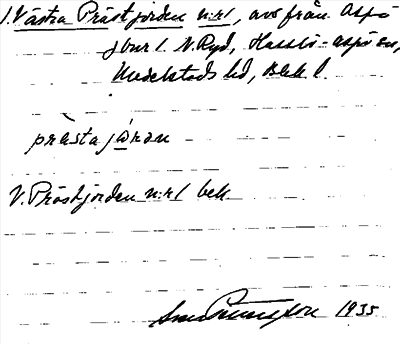 1. Västra Prästjorden n:r 1, avs från Aspö
jbur 1. N. Ryd, Hasslö-Aspö sn,
Medelstads hd, Blek. l.
prästa jåran
V. Prästjorden n:r 1 bek.
1935